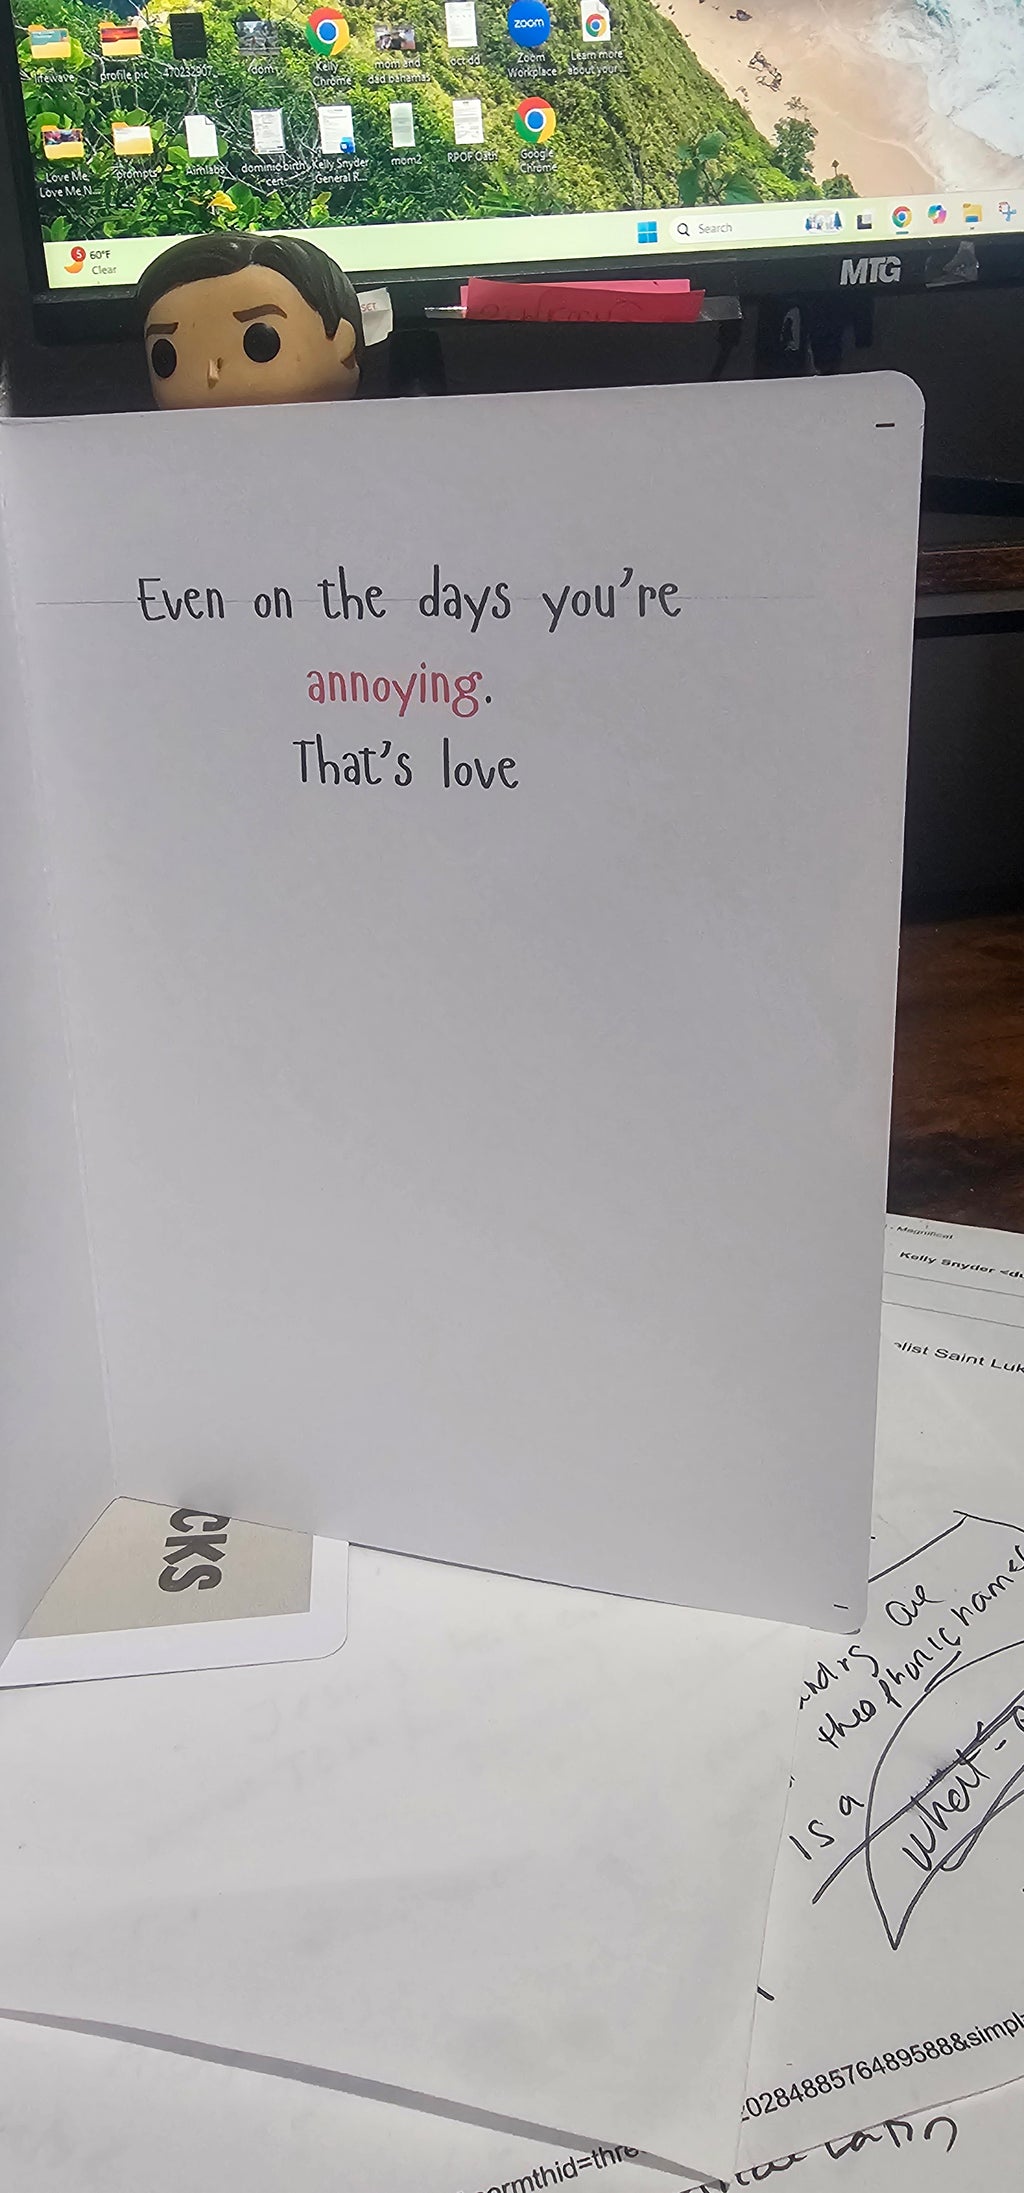 lifewave
profile pic
470232907...
dom
Kelly
Chrome
mom and
dad bahamas
oct dd
zoom
Zoom
Workplace
Learn more
about your...
Love Me
Love Me N...
prompts
Aimlabs
dominic birth
cert...
Kelly Snyder
General R...
mom2
RPOF Oath
Google
Chrome
5
60°F
Clear
Search
MTG
SET
Even on the days you're
annoying.
That's love
CKS
- Magnificat
Kelly Snyder <d
elist Saint Luk
are
theophonic names
is a
what-
2028488576489588&simpl
ormthid=thre